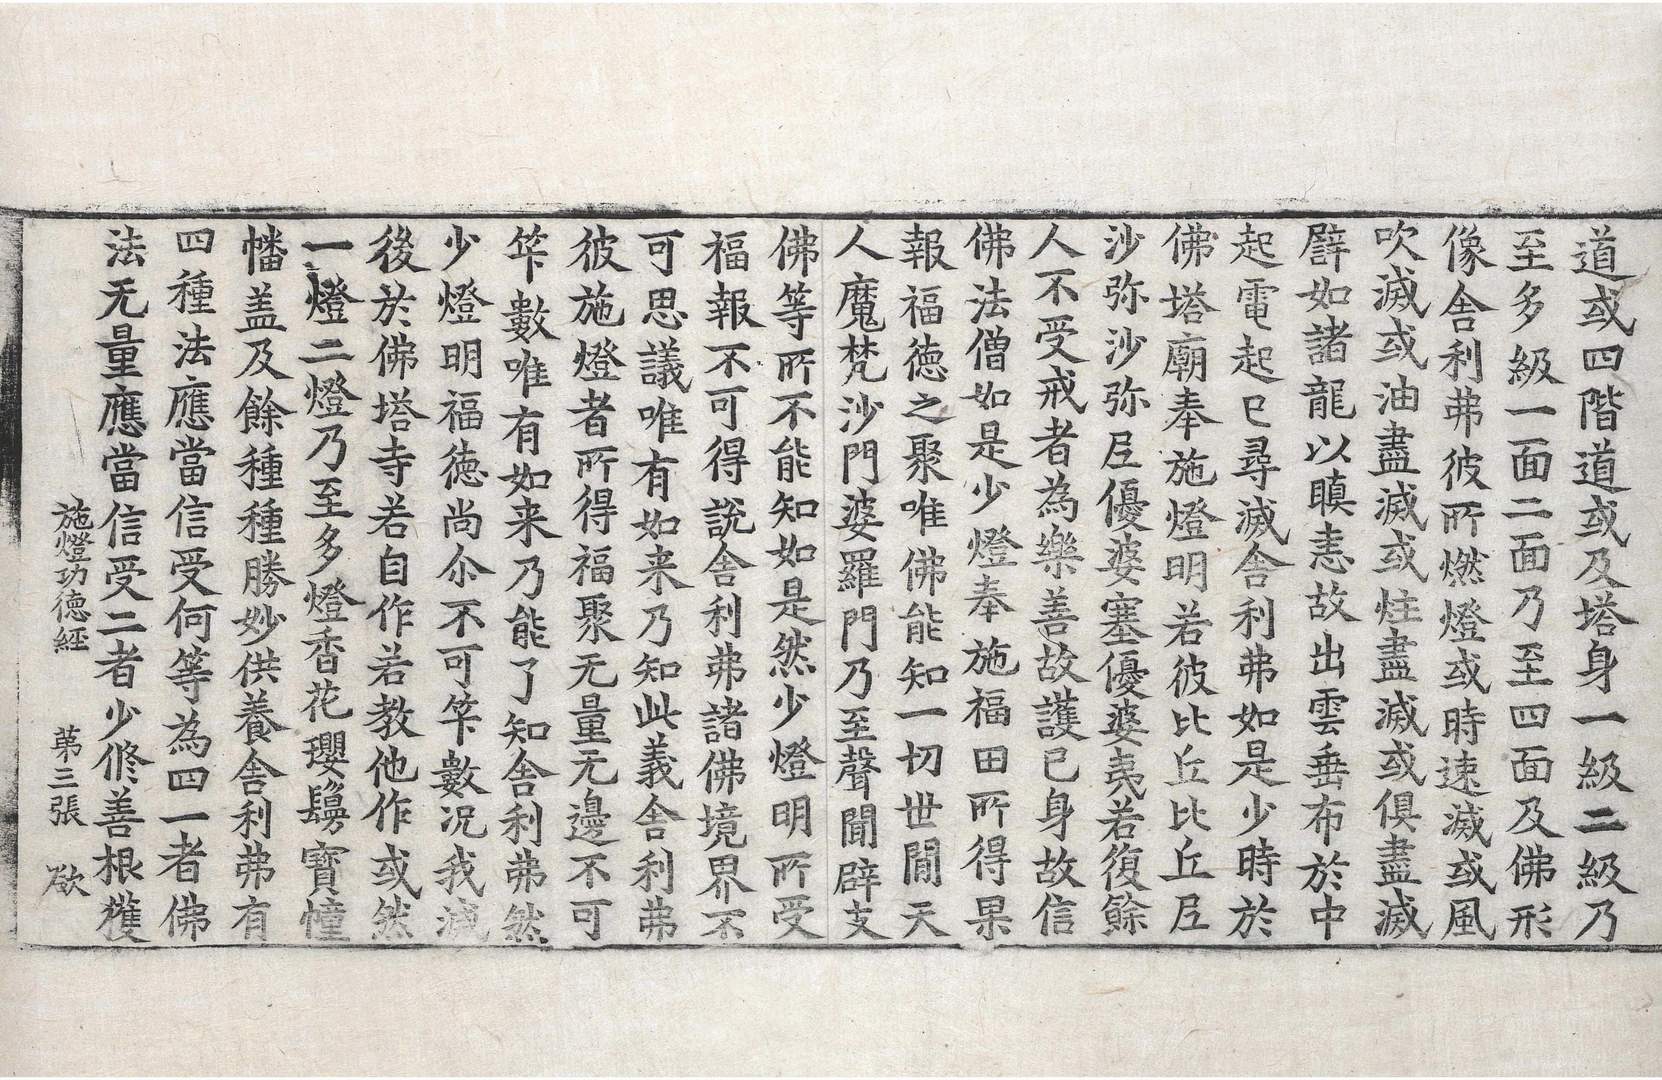 道或四階道或及塔身一級二級乃
至多級一面二面乃至四面及佛形
像舍利弗彼所燃燈或時速滅或風
吹滅或油盡滅或炷盡滅或俱盡滅
譬如諸龍以瞋恚故出雲垂布於中
起電起已尋滅舍利弗如是少時於
佛塔廟奉施燈明若彼比丘比丘𡰱
沙弥沙弥𡰱優婆塞優婆夷若復餘
人不受戒者為樂善故護已身故信
佛法僧如是少燈奉施福田所得果
報福徳之聚唯佛能知一切世間天
人魔梵沙門婆羅門乃至聲聞辟支
佛等所不能知如是然少燈明所受
福報不可得說舍利弗諸佛境界不
可思議唯有如来乃知此義舍利弗
彼施燈者所得福聚无量无邊不可
筭數唯有如来乃能了知舍利弗然
少燈明福徳尚尒不可筭數況我滅
後於佛塔寺若自作若教他作或然
一燈二燈乃至多燈香花瓔鬘寶幢
幡盖及餘種種勝妙供養舍利弗有
四種法應當信受何等為四一者佛
法无量應當信受二者少修善根獲
施燈功徳經　第三張　欲